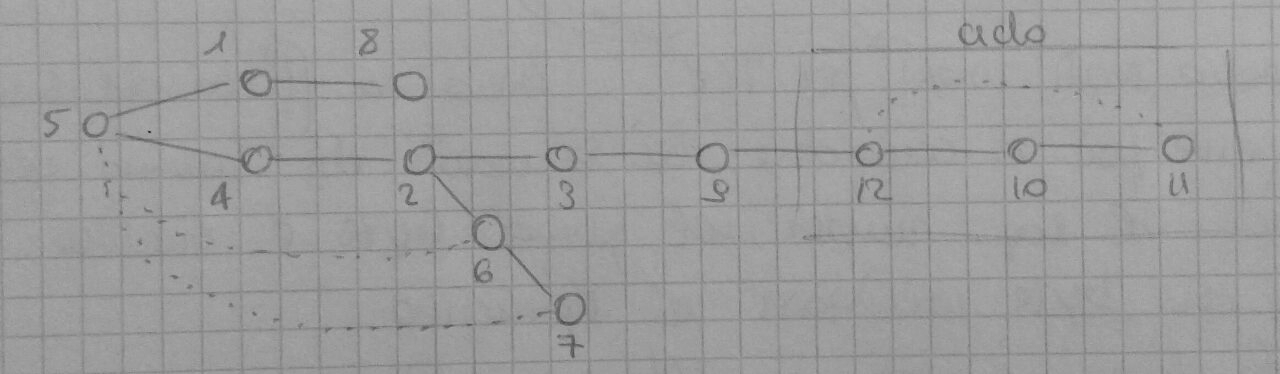 ado
1 8
5
4 2 3 9 12 10 11
6
7